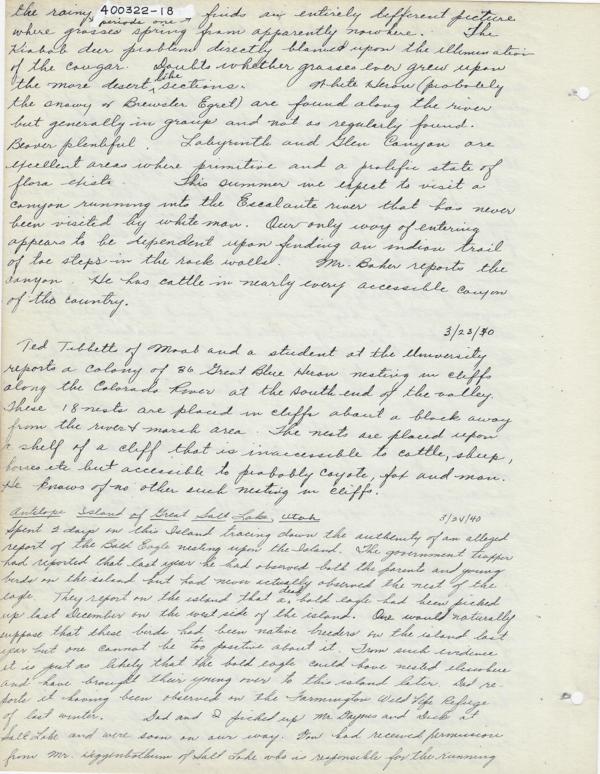 400322-18
the rainy periods one finds an entirely different picture
where grasses spring from apparently nowhere. The
Kiabab deer problem directly blamed upon the illumination
of the cougar. Doubts whether grasses ever grew upon
the more desert like sections. White Heron (probably
the snowy or Brewster Egret) are found along the river
but generally in group and not as regularly found.
Beaver plentiful. Labyrinth and Glen Canyon are
excellent areas where primitive and a prolific state of
flora exists. This summer we expect to visit a
canyon running into the Escalante river that has never
been visited by white man. Our only way of entering
appears to be dependent upon finding an indian trail
of toe steps in the rock walls. Mr. Baker reports the
canyon. He has cattle in nearly every accessible canyon
of the country.
3/23/40
Ted Tibbetts of Moab and a student at the University
reports a colony of 36 Great Blue Heron nesting in cliffs
along the Colorado River at the south end of the valley.
These 18 nests are placed in cliffs about a block away
from the river & marsh area. The nests are placed upon
a shelf of a cliff that is inaccessible to cattle, sheep,
horses etc but accessible to probably coyote, fox and man.
He knows of no other such nesting in cliffs.
Antelope Island of Great Salt Lake, Utah 3/24/40
Spent 2 days on this Island tracing down the authenity of an alleged
report of the Bald Eagle nesting upon the Island. The government trapper
had reported that last year he had observed both the parents and young
birds on the island but had never actually observed the nest of the
eagle. They report on the island that a dead bald eagle had been picked
up last December on the west side of the island. One would naturally
suppose that these birds had been native breeders on the island last
year but one cannot be too positive about it. From such evidence
it is put as likely that the bald eagle could have nested elsewhere
and have brought their young over to this island later. Dad re-
ports it having been observed on the Farmington Wild Life Refuge
of last winter. Dad and I picked up Mr. and Dick at
Salt Lake and were soon on our way. had received permission
from Mr. of Salt Lake who is responsible for the running